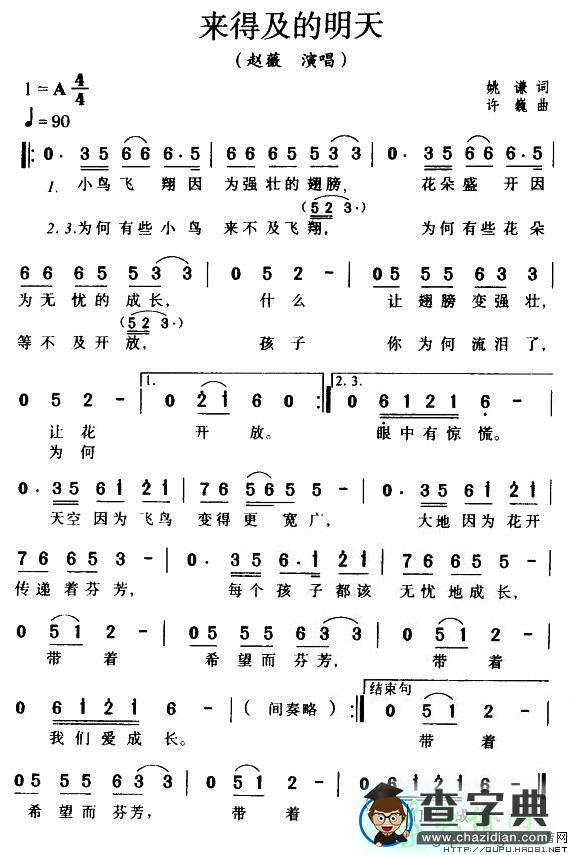 来得及的明天
（赵薇 演唱）
1＝A 4/4
姚谦词
♩＝90
许巍曲
0· 35 66 6·5 | 66 65 53 53 | 0· 35 66 6·5 |
1. 小鸟飞翔因 为强壮的翅膀， 花朵盛开因
(523·)
2.3.为何有些小鸟 来不及飞翔， 为何有些花朵
66 65 53 3 | 0 52 - | 05 55 63 3 |
为无忧的成长， 什么 让翅膀变强壮，
(523·)
等不及开放， 孩子 你为何流泪了，
0 5 2 - | 1. 0 21 6 0 :|| 2.3. 0 6121 6 - |
让花 开放。 眼中有惊慌。
为何
0· 35 61 21 | 76 565 5 | 0· 35 61 21 |
天空因为飞鸟 变得更宽广， 大地因为花开
76 65 3 | 0· 35 6·1 21 | 76 65 5 |
传递着芬芳， 每个孩子都该 无忧地成长，
0 51 2 - | 05 55 63 3 | 0 51 2 - |
带着 希望而芬芳， 带着
0 6121 6 - | （间奏略） :|| 结束句 0 51 2 - |
我们爱成长。 带着
05 55 63 3 | 0 51 2 - | 0 6121 6 - ||
希望而芬芳， 带着
查字典
www.chazidian.com